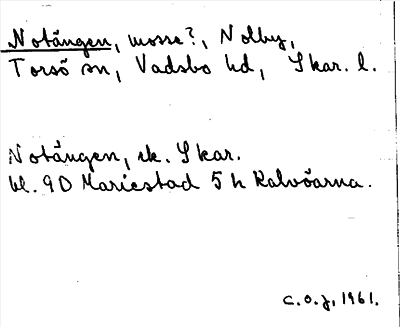 Notängen, mosse?, Nolby,
Torsö sn, Vadsbo hd, Skar. l.
Notängen, ek. Skar.
bl. 9D Mariestad 5 h Kalvöarna.
C.O.J. 1961.